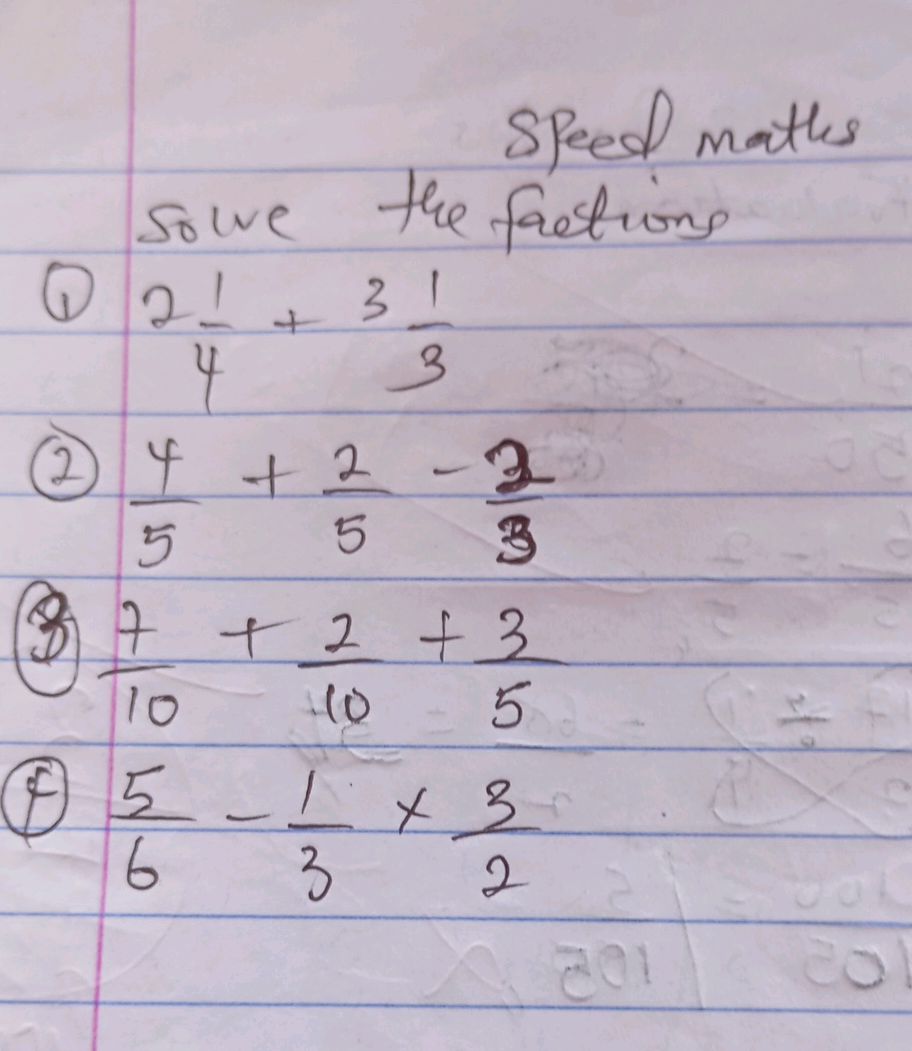 Speed maths
Solve the factions
① 2 1/4 + 3 1/3
② 4/5 + 2/5 - 2/3
③ 7/10 + 2/10 + 3/5
④ 5/6 - 1/3 × 3/2